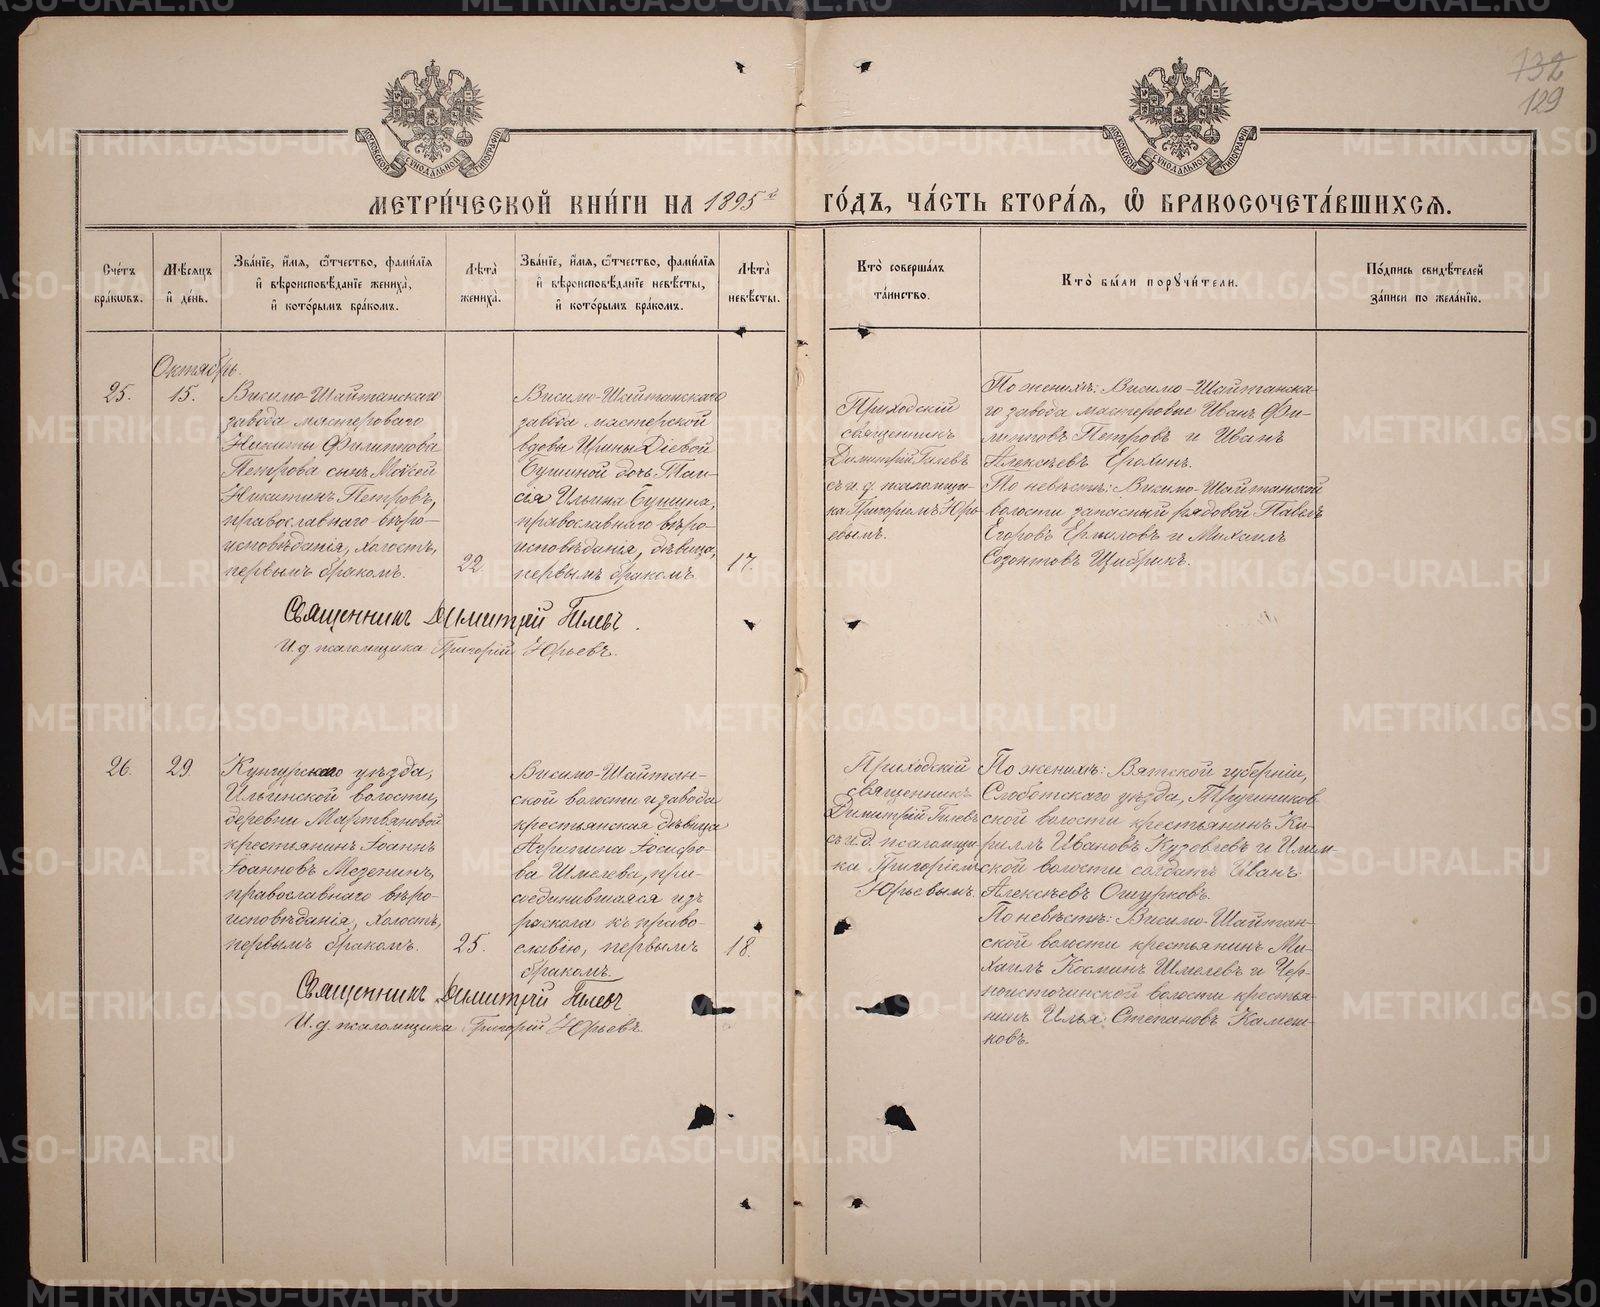 132
129
МОСКОВСКОЙ СѴНОДАЛЬНОЙ ТИПОГРАФІИ
МОСКОВСКОЙ СѴНОДАЛЬНОЙ ТИПОГРАФІИ
МЕТРИ́ЧЕСКОЙ КНИ́ГИ НА 1895й ГО́ДЪ, ЧА́СТЬ ВТОРА́Я, Ѽ БРАКОСОЧЕТА́ВШИХСЯ.
Сче́тъ
бра́кѡвъ.
Мѣ́сяцъ
и҆ де́нь.
Зва́нїе, и҆́мя, ѻ҆́тчество, фами́лїя
и҆ вѣроисповѣ́данїе жениха̀,
и҆ кото́рымъ бра́комъ.
Лѣ́та
жениха̀.
Зва́нїе, и҆́мя, ѻ҆́тчество, фами́лїя
и҆ вѣроисповѣ́данїе невѣ́сты,
и҆ кото́рымъ бра́комъ.
Лѣ́та
невѣ́сты.
Кто̀ соверша́лъ
та́инство.
Кто̀ бы́ли поручи́тели.
По́дпись свидѣ́телей
за́писи по жела́нїю.
Октябрь.
25.
15.
Висимо-Шайтанскаго
завода мастероваго
Никиты Филиппова
Петрова сынъ Моѵсей
Никитинъ Петровъ,
православнаго вѣро-
исповѣданія, холостъ,
первымъ бракомъ.
22.
Висимо-Шайтанскаго
завода мастерской
вдовы Ирины Діевой
Бушиной дочь Таи-
сія Ильина Бушина,
православнаго вѣро-
исповѣданія, дѣвица,
первымъ бракомъ.
17.
Приходскій
священникъ
Димитрій Гилевъ
съ и. д. псаломщи-
ка Григоріемъ Юрь-
евымъ.
По женихѣ: Висимо-Шайтанска-
го завода мастеровые Иванъ Фи-
липповъ Петровъ и Иванъ
Алексѣевъ Ерохинъ.
По невѣстѣ: Висимо-Шайтанской
волости запасный рядовой Павелъ
Егоровъ Ермиловъ и Михаилъ
Созонтовъ Щибрикъ.
Священникъ Димитрій Гилевъ.
И. д. псаломщика Григорій Юрьевъ.
26.
29.
Кунгурскаго уѣзда,
Ильинской волости,
деревни Мартьяновой
крестьянинъ Іоаннъ
Іоанновъ Мезенинъ,
православнаго вѣро-
исповѣданія, холостъ,
первымъ бракомъ.
25.
Висимо-Шайтан-
ской волости и завода
крестьянская дѣвица
Агрипина Іосифо-
ва Шмелева, при-
соединившаяся изъ
раскола къ право-
славію, первымъ
бракомъ.
18.
Приходскій
священникъ
Димитрій Гилевъ
съ и. д. псаломщи-
ка Григоріемъ
Юрьевымъ.
По женихѣ: Вятской губерніи,
Слободскаго уѣзда,
ской волости крестьянинъ Ки-
риллъ Ивановъ Кузовлевъ и Илим-
ской волости солдатъ Иванъ
Алексѣевъ Ошурковъ.
По невѣстѣ: Висимо-Шайтан-
ской волости крестьянинъ Ми-
хаилъ Косминъ Шмелевъ и Чер-
ноисточинской волости крестья-
нинъ Илья Степановъ Камеш-
ковъ.
Священникъ Димитрій Гилевъ
И. д. псаломщика Григорій Юрьевъ.
METRIKI.GASO-URAL.RU